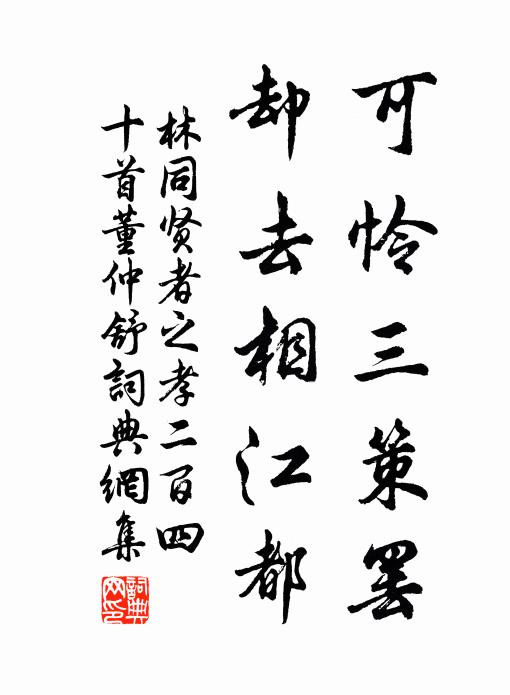 可怜三策罢
却去相江都
林同贤者之孝二百四
十首董仲舒詞典網集
詞典網印